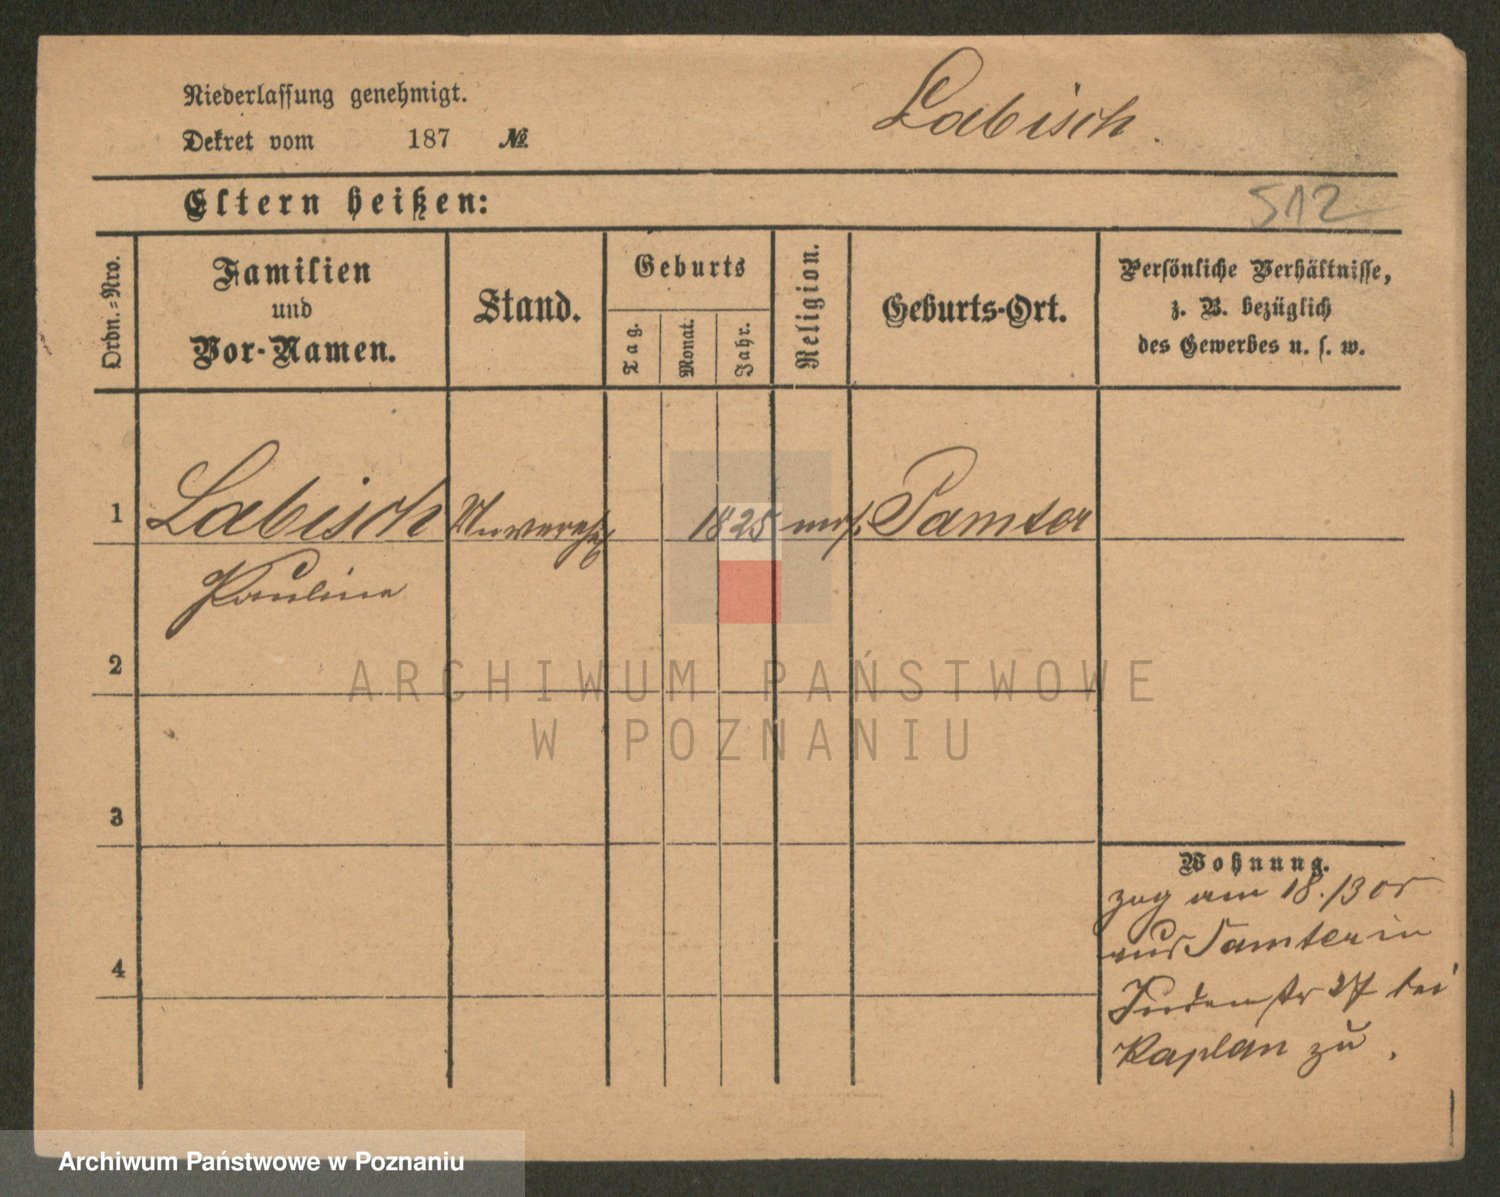 Niederlassung genehmigt.
Labisch.
Dekret vom 187 №.
Eltern heißen:
512
Ordn.=Nro.
Familien
und
Vor-Namen.
Stand.
Geburts
Tag.
Monat.
Jahr.
Religion.
Geburts-Ort.
Persönliche Verhältnisse,
z. B. bezüglich
des Gewerbes u. s. w.
1
Labisch
1825
mos.
Samter
Pauline
2
ARCHIWUM PAŃSTWOWE
W POZNANIU
3
Wohnung.
zog am 18./3 05
aus Samter in
Judenstr 27 bei
Kaplan zu.
4
Archiwum Państwowe w Poznaniu